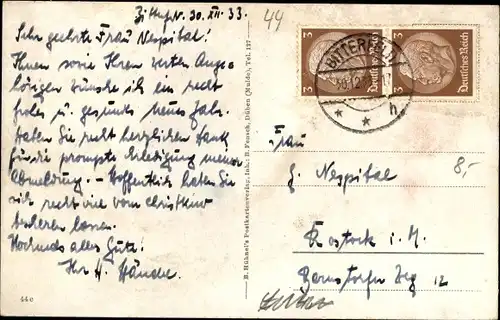 Bitterf. 30. XII. 33.
44
Sehr geehrte Frau Nespital!
Ihnen sowie Ihren werten Ange-
hörigen wünsche ich ein recht
frohes u. gesundes neues Jahr.
Haben Sie recht herzlichen Dank
für die prompte Erledigung meiner
Abmeldung. – Hoffentlich haben Sie
sich recht viel vom Christkind
bescheren lassen.
Nochmals alles Gute!
Ihr H.
440
B. Hühnel's Postkartenverlag, Inh.: B. Fensch, Düben (Mulde), Tel. 137
3 Deutsches Reich 3
3 Deutsches Reich 3
BITTERFELD
30.12.
* * h
Frau
Nespital
8,-
Rostock i. M.
Barnstorfer Weg 12